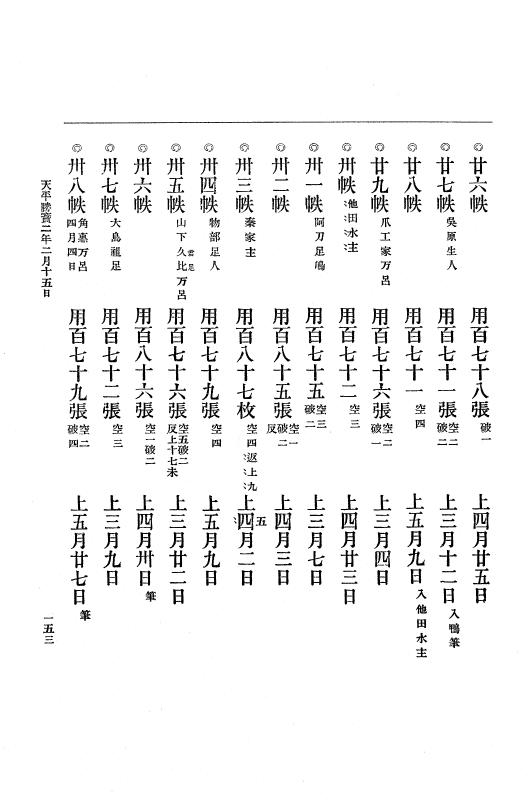 ◎廿六帙 用百七十八張破一 上四月廿五日
◎廿七帙吳原生人 用百七十一張空二破二 上三月十二日入鴨筆
◎廿八帙 用百七十一空四 上五月九日入他田水主
◎廿九帙爪工家万呂 用百七十六張空二破一 上三月四日
◎卅帙他田水主 用百七十二空三 上四月廿三日
◎卅一帙阿刀足嶋 用百七十五空三破二 上三月七日
◎卅二帙 用百八十五張空一破二反 上四月三日
◎卅三帙秦家主 用百八十七枚空四返上九 上四五月二日
◎卅四帙物部足人 用百七十九張空四 上五月九日
◎卅五帙山下久比万呂君足 用百七十六張空五破二反上十七未 上三月廿二日
◎卅六帙 用百八十六張空一破二 上四月卅日筆
◎卅七帙大鳥祖足 用百七十二張空三 上三月九日
◎卅八帙角惠万呂四月四日 用百七十九張空二破四 上五月廿七日筆
天平勝寶二年二月十五日
一五三